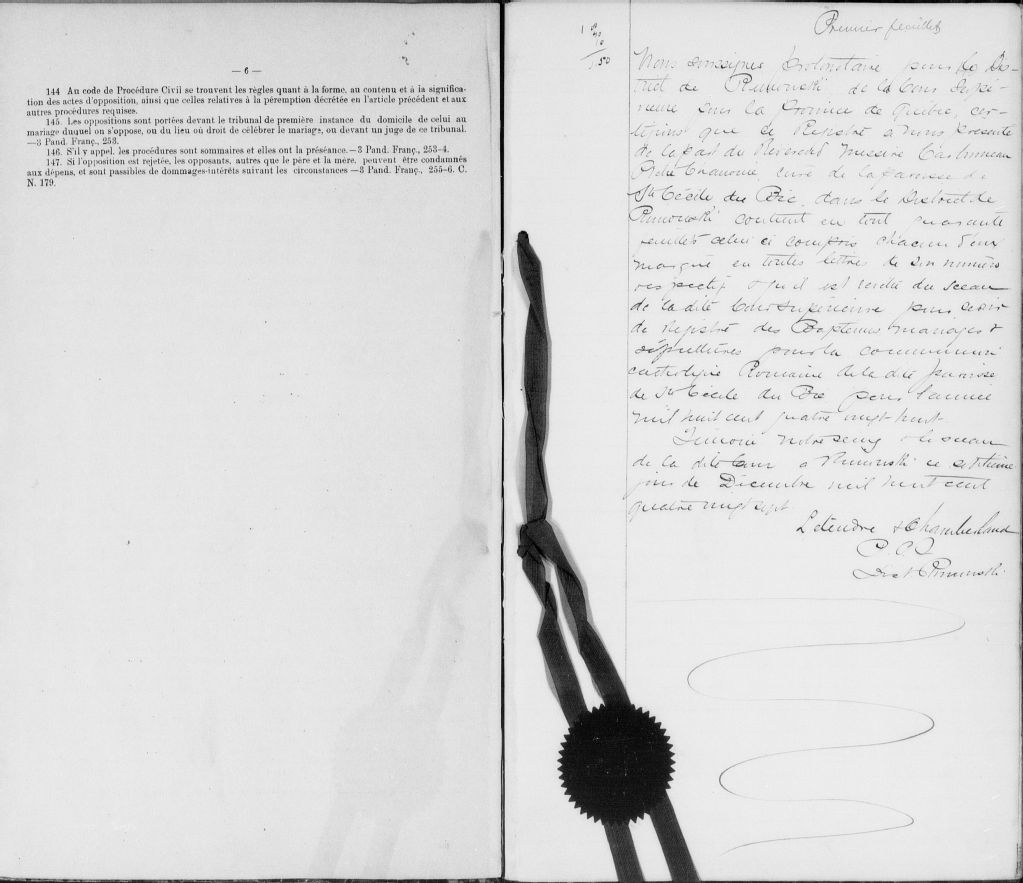 — 6 —
144 Au code de Procédure Civil se trouvent les règles quant à la forme, au contenu et à la significa-
tion des actes d'opposition, ainsi que celles relatives à la péremption décrétée en l'article précédent et aux
autres procédures requises.
145. Les oppositions sont portées devant le tribunal de première instance du domicile de celui au
mariage duquel on s'oppose, ou du lieu où droit de célébrer le mariage, ou devant un juge de ce tribunal.
—3 Pand. Franç., 253.
146. S'il y appel, les procédures sont sommaires et elles ont la préséance.—3 Pand. Franç., 253-4.
147. Si l'opposition est rejetée, les opposants, autres que le père et la mère, peuvent être condamnés
aux dépens, et sont passibles de dommages-intérêts suivant les circonstances —3 Pand. Franç., 255-6. C.
N. 179.
Premier feuillet
Nous soussignés Protonotaire pour le Dis-
trict de Rimouski, de la Cour Supé-
rieure pour la Province de Québec, cer-
tifions que ce Registre a nous présenté
de la part du Révérend Messire Carbonneau
Ptre Chanoine, curé de la paroisse de
Ste Cécile du Bic, dans le District de
Rimouski contient en tout quarante
feuillets celui ci compris chacun d'eux
marqué en toutes lettres de son numéro
respectif & qu'il est revêtu du sceau
de la dite Cour Supérieure pour servir
de registre des Baptêmes mariages &
sépultures pour la communion
catholique Romaine de la dite paroisse
de Ste Cécile du Bic pour l'année
mil huit cent quatre vingt huit
Témoin notre seing & le sceau
de la dite Cour a Rimouski ce septième
jour de Décembre mil huit cent
quatre vingt sept
Letendre & Chamberland
P. C. S
Dist Rimouski